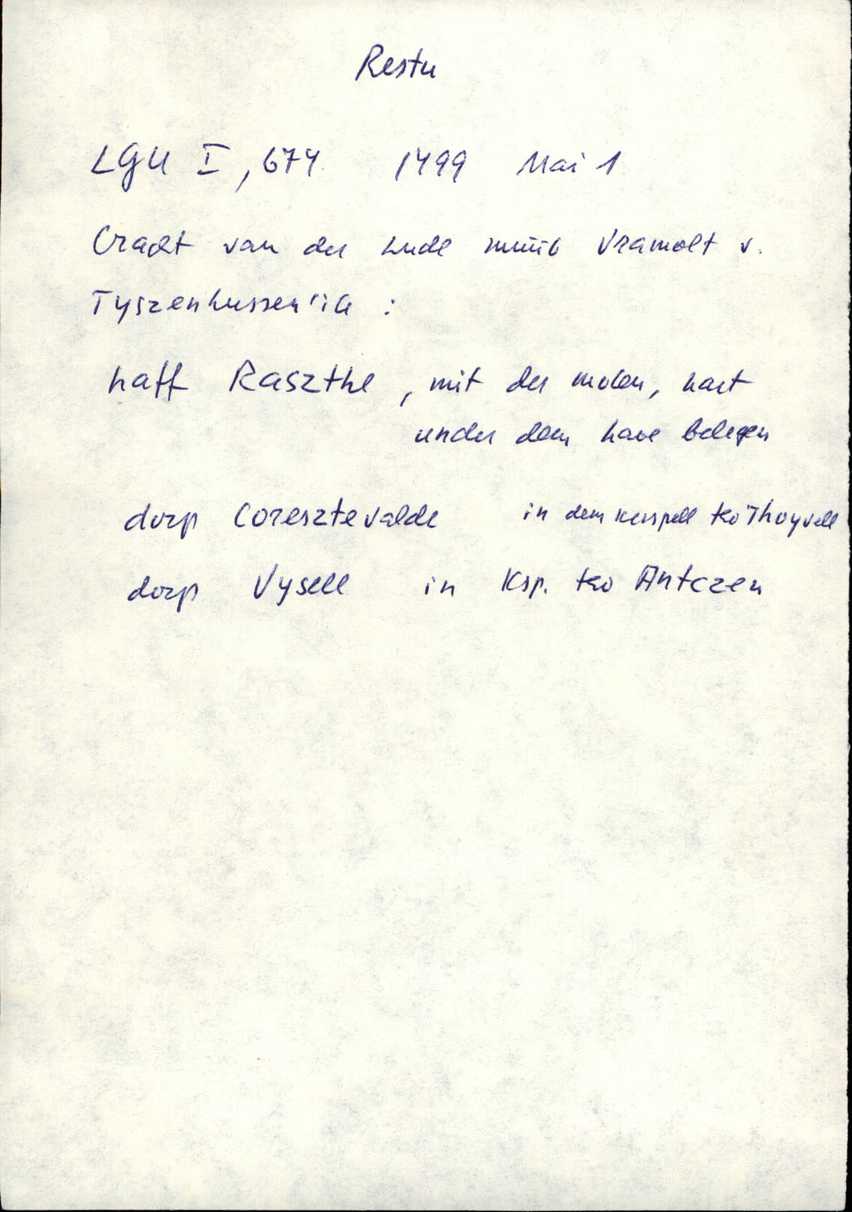 Restu
LGU I, 674 1499 Mai 1
Cracht van der Lude müüb Vramolt v.
Tyszenhussen'ile :
haff Raszthe, mit der molen, hart
under dem have belegen
dorp Coresztevalde in dem kerspell tho Thoyvell
dorp Vysell in Ksp. tho Antczen